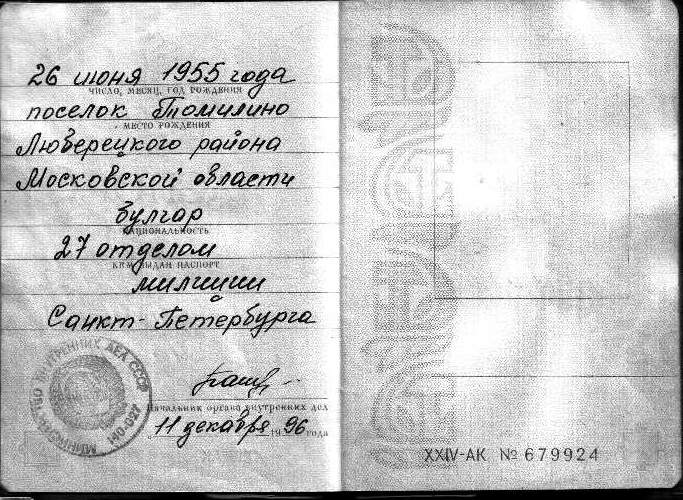 26 июня 1955 года
ЧИСЛО, МЕСЯЦ, ГОД РОЖДЕНИЯ
поселок Томилино
МЕСТО РОЖДЕНИЯ
Люберецкого района
Московской области
булгар
НАЦИОНАЛЬНОСТЬ
27 отделом
КЕМ ВЫДАН ПАСПОРТ
милиции
Санкт-Петербурга
МИНИСТЕРСТВО ВНУТРЕННИХ ДЕЛ СССР
Начальник органа внутренних дел
„11 декабря 1996 года
XXIV-АК № 679924